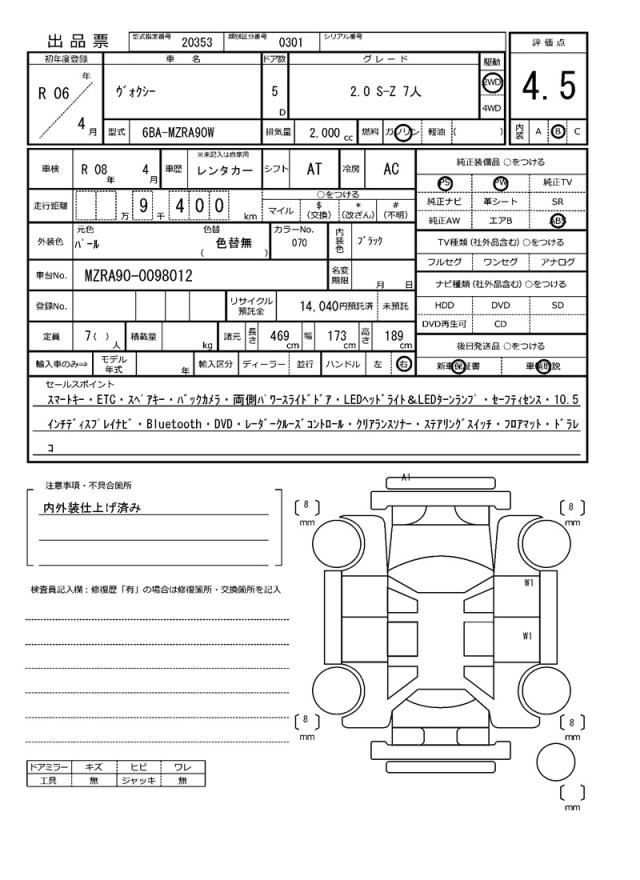 出品票 型式指定番号 20353 類別区分番号 0301 シリアル番号
初年度登録 車名 ドア数 グレード 駆動 評価点
R 06 年 4 月 ヴォクシー 5 D 2.0 S-Z 7人 2WD 4WD 4.5
型式 6BA-MZRA90W 排気量 2,000 cc 燃料 ガソリン 軽油 ( ) 内装 A B C
車検 R 08 年 4 月 車歴 ※未記入は自家用 レンタカー シフト AT 冷房 AC
走行距離 万 9 千 4 0 0 km ○をつける
マイル $ (交換) * (改ざん) # (不明)
外装色 元色 パール 色替 色替無 ( ) カラーNo. 070 内装色 ブラック
車台No. MZRA90-0098012 名変期限 月 日
登録No. リサイクル預託金 14,040円預託済 未預託
定員 7( ) 人 積載量 kg 諸元 長さ 469 cm 幅 173 cm 高さ 189 cm
輸入車のみ⇒ モデル年式 年 輸入区分 ディーラー 並行 ハンドル 左 右
純正装備品 ○をつける
PS PW 純正TV
純正ナビ 革シート SR
純正AW エアB ABS
TV種類 (社外品含む) ○をつける
フルセグ ワンセグ アナログ
ナビ種類 (社外品含む) ○をつける
HDD DVD SD
DVD再生可 CD
後日発送品 ○をつける
新車保証書 車輌取説
セールスポイント
スマートキー・ETC・スペアキー・バックカメラ・両側パワースライドドア・LEDヘッドライト&LEDターンランプ・セーフティセンス・10.5
インチディスプレイナビ・Bluetooth・DVD・レーダークルーズコントロール・クリアランスソナー・ステアリングスイッチ・フロアマット・ドラレ
コ
注意事項・不具合箇所
内外装仕上げ済み
検査員記入欄：修復歴「有」の場合は修復箇所・交換箇所を記入
A1
[ 8 ] mm [ 8 ] mm
W1
W1
[ 8 ] mm [ 8 ] mm
[ ] mm
ドアミラー キズ ヒビ ワレ
工具 無 ジャッキ 無